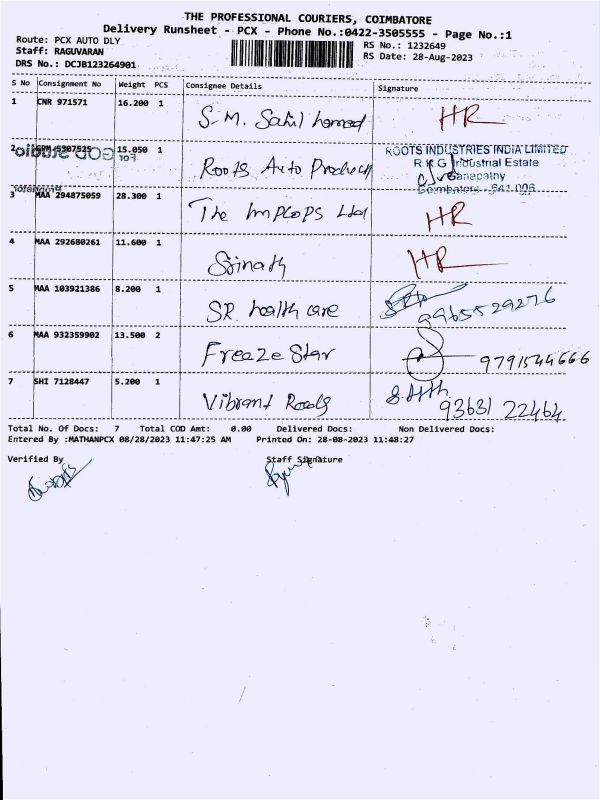 THE PROFESSIONAL COURIERS, COIMBATORE
Delivery Runsheet - PCX - Phone No.:0422-3505555 - Page No.:1
Route: PCX AUTO DLY
RS No.: 1232649
Staff: RAGUVARAN
RS Date: 28-Aug-2023
DRS No.: DCJB123264901
S No Consignment No Weight PCS Consignee Details Signature
1 CNR 971571 16.200 1 S.M. Sahil hamed HR
2 15.050 1 Roots Auto Product
ROOTS INDUSTRIES INDIA LIMITED
R K G Industrial Estate
Ganapathy
Coimbatore - 641 006
For GOD Studio
Proprietor
3 MAA 294875059 28.300 1 The Ltd HR
4 MAA 292680261 11.600 1 Srinath HR
5 MAA 103921386 8.200 1 SR health care 9965529276
6 MAA 932359902 13.500 2 Freeze Star 9791544666
7 SHI 7128447 5.200 1 Vibrant Roads 93631 22464
Total No. Of Docs: 7 Total COD Amt: 0.00 Delivered Docs: Non Delivered Docs:
Entered By :MATHANPCX 08/28/2023 11:47:25 AM Printed On: 28-08-2023 11:48:27
Verified By Staff Signature